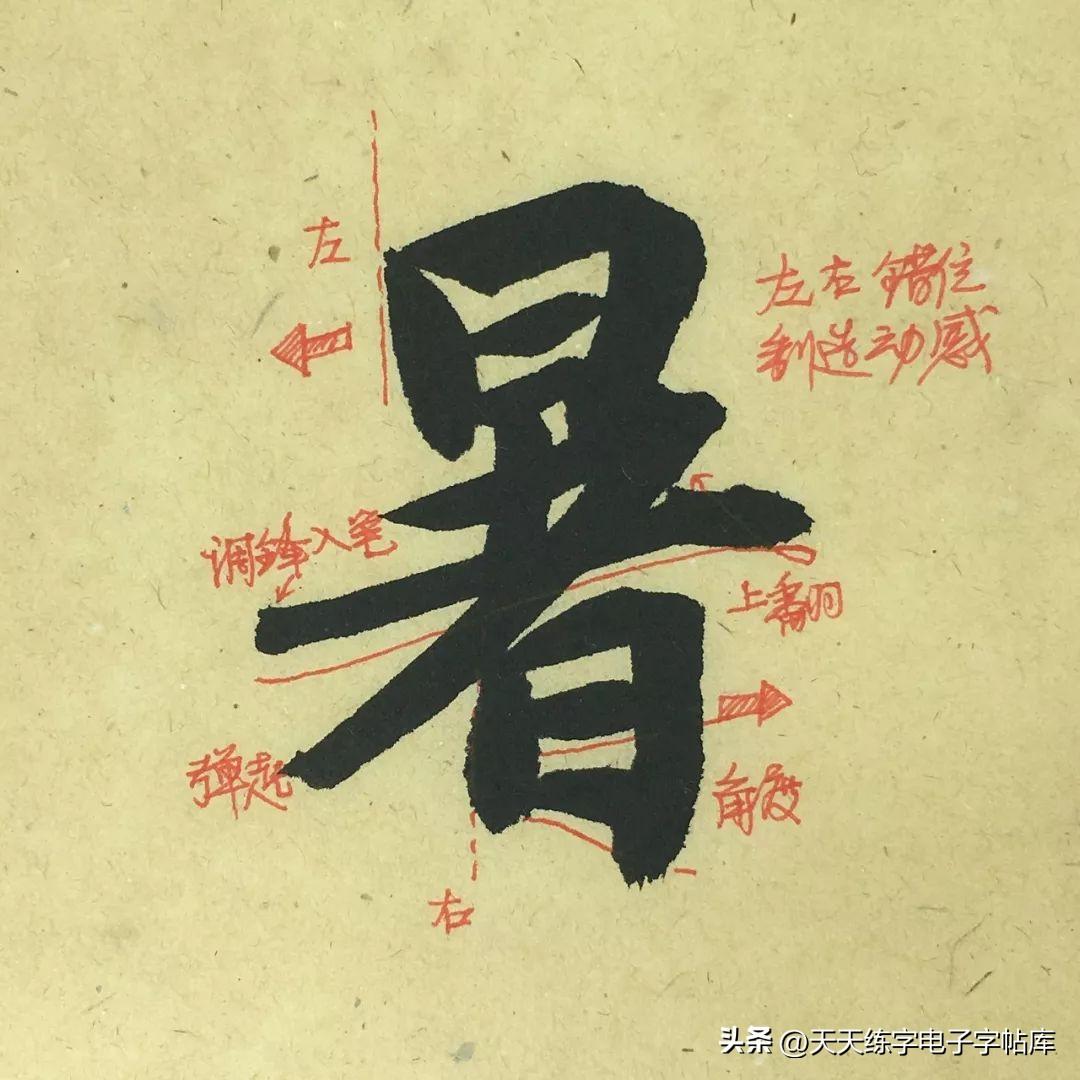 暑
左
左右错位
制造动感
调锋入笔
上翻
弹起
角度
右
头条 @天天练字电子字帖库